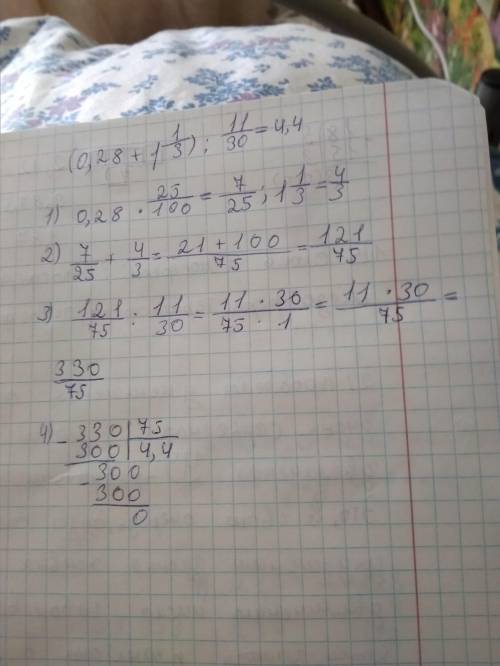 (0,28 + 1 1/3) : 11/30 = 4,4
1) 0,28 · 25/100 = 7/25 ; 1 1/3 = 4/3
2) 7/25 + 4/3 = 21 + 100/75 = 121/75
3) 121/75 : 11/30 = 11 · 30/75 · 1 = 11 · 30/75 =
330/75
4) - 330 | 75
300 | 4,4
- 300
300
0